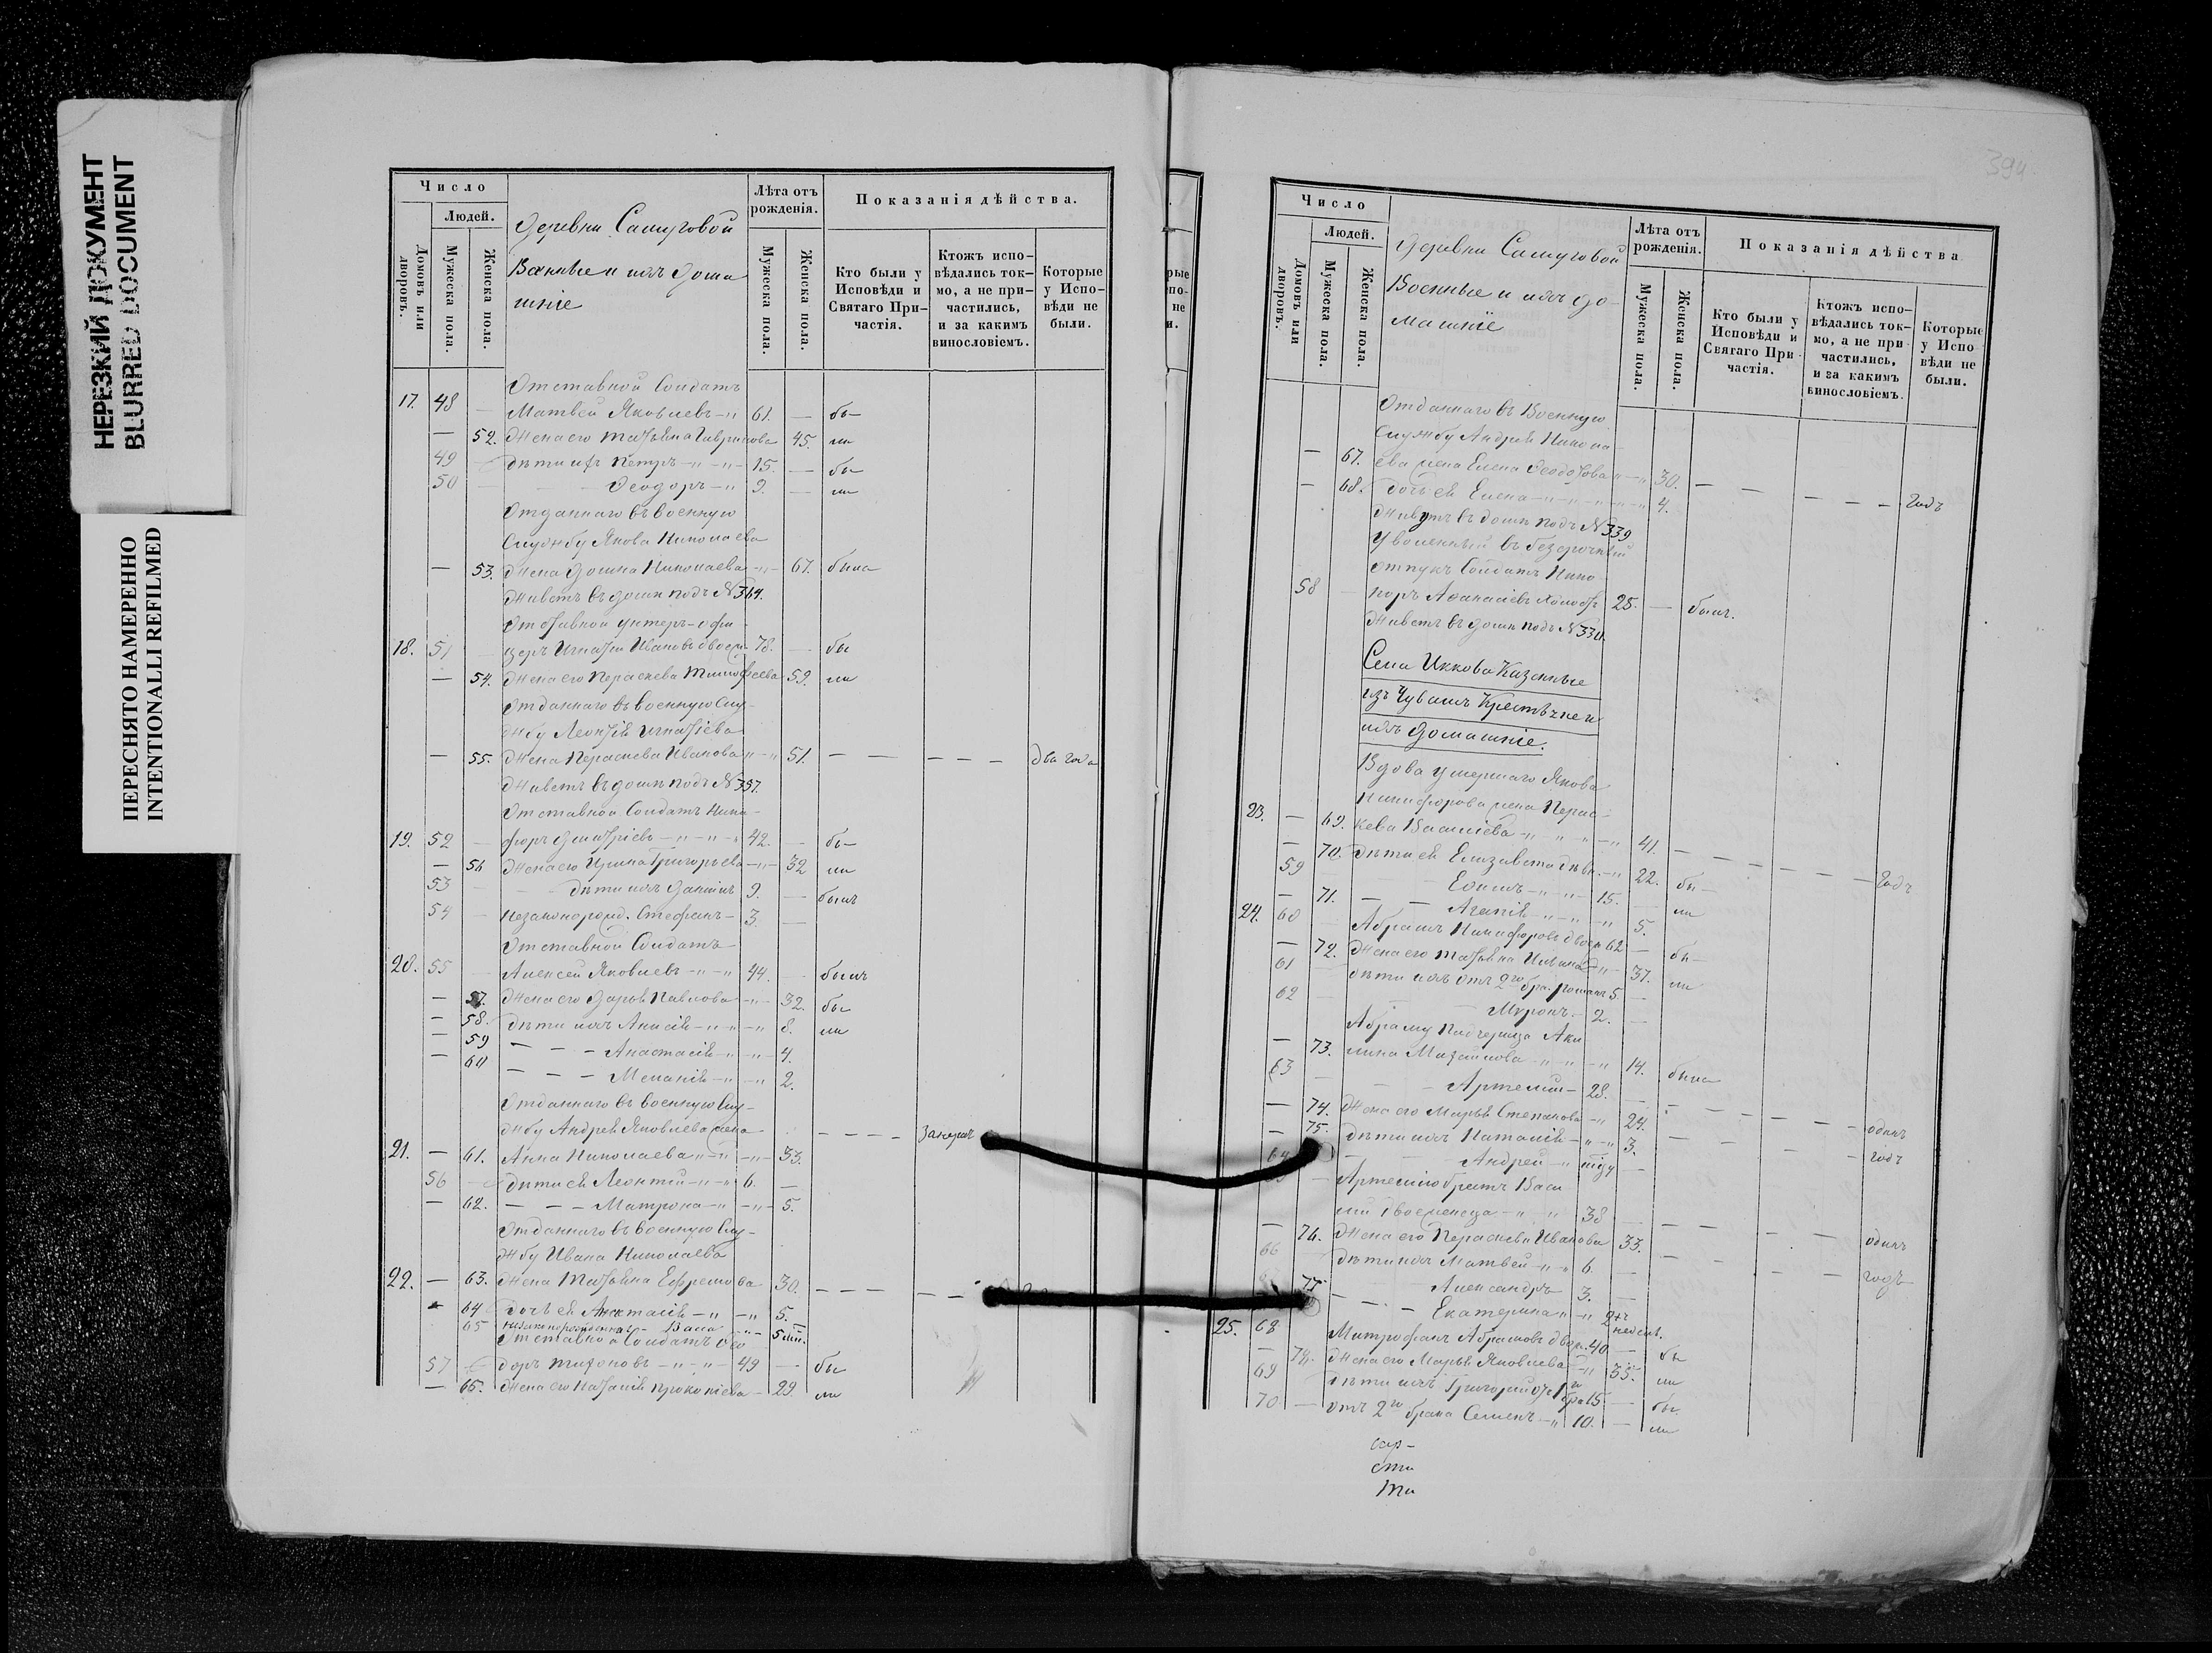 НЕРЕЗКИЙ ДОКУМЕНТ
BLURRED DOCUMENT
ПЕРЕСНЯТО НАМЕРЕННО
INTENTIONALLI REFILMED
Число
Людей.
Домовъ или дворовъ.
Мужеска пола.
Женска пола.
Деревни Самуковой
Военные и ихъ дома
шніе
Лѣта отъ рожденія.
Мужеска пола.
Женска пола.
Показанія дѣйства.
Кто были у Исповѣди и Святаго При-частія.
Ктожъ испо-вѣдались ток-мо, а не при-частились, и за какимъ винословіемъ.
Которые у Испо-вѣди не были.
Отставной Солдатъ
17. 48 — Матвей Яковлевъ -"- 61. — бы-
— 52. Жена его Татьяна Гаврилова 45. ли
49 — дѣти ихъ Петръ -"-"- 15. — бы
50 — — Ѳеодоръ -"- 9. — ли
Отданнаго въ военную
Службу Якова Николаева
— 53. Жена Домна Николаева -"- 67. была
Живетъ въ домѣ подъ №364.
Отставной унтеръ-офи-
18. 51 — церъ Игнатій Ивановъ двоеж. 78. — бы
— 54. Жена его Параскева Тимофеева 59. ли
Отданнаго въ военную Слу-
жбу Леонтія Игнатіева
— 55. Жена Параскева Иванова -"- 51. — — — — — два года
Живетъ въ домѣ подъ №357.
Отставной Солдатъ Ники-
19. 52 — форъ Дмитріевъ -"-"- 42. — бы-
— 56 Жена его Ирина Григорьева -"- 32 ли
53 — — дѣти ихъ Даніилъ 9. — былъ
54 — незаконорожд. Стефанъ — 3. —
Отставной Солдатъ
20. 55 — Алексей Яковлевъ -"-"- 44. — былъ
— 57. Жена его Дарья Павлова -"- 32. бы
— 58. дѣти ихъ Анисія -"-"-"- 8. ли
— 59 — — — Анастасія -"-"- 4.
— 60 — — — Меланія -"-"- 2.
Отданнаго въ военную Слу-
жбу Андрея Яковлева жена
21. — 61. Анна Николаева -"-"- 33.
56 — дѣти ея Леонтій -"-"- 6. —
— 62. — — — Матрона -"-"- 5.
Отданнаго въ военную Слу-
жбу Ивана Николаева
22. — 63. Жена Татьяна Ефремова 30. — — — —
— 64 дочь ея Анастасія -"-"- 5.
65 незаконорожденная - Васса -"- 5 мѣс.
Отставной Солдатъ Ѳео
57 — доръ Тихоновъ -"-"- 49 — бы
— 66. Жена его Наталія Прокопіева — 29 ли
394
Число
Людей.
Домовъ или дворовъ.
Мужеска пола.
Женска пола.
Деревни Самуковой
Военные и ихъ до-
машніе
Лѣта отъ рожденія.
Мужеска пола.
Женска пола.
Показанія дѣйства
Кто были у Исповѣди и Святаго При-частія.
Ктожъ испо-вѣдались ток-мо, а не при-частились, и за какимъ винословіемъ.
Которые у Испо-вѣди не были.
Отданнаго въ Военную
Службу Андрея Никола-
— 67. ева жена Елена Ѳеодотова -"- 30. — — — — — годъ
— 68. дочь ея Елена -"-"-"- 4.
Живутъ въ домѣ подъ №339
Уволенный въ безсрочный
отпускъ Солдатъ Ники-
58 — форъ Аѳанасіевъ холостъ 25. — былъ.
Живетъ въ домѣ подъ №330.
Села Иккова Казенные
изъ Чувашъ Крестьяне и
ихъ домашніе.
Вдова умершаго Якова
Никифорова жена Парас-
23. — 69. кева Василіева -"-"-"- 41. — — — — — годъ
— 70. дѣти ея Елизавета дѣв. -"- 22. бы
59 — — Ефимъ -"-"- 15. — ли
— 71. — — Агапія -"-"-"- 5.
24. 60 Абрамъ Никифоровъ двоеж 62 — бы-
— 72. Жена его Татьяна -"- 37. ли
61 дѣти ихъ отъ 2го бра. Романъ 5. —
62 — Миронъ — 2. —
Абраму падчерица Аки
— 73. лина Михайлова -"-"-"- 14. была
63 — — Артемій — 28. —
— 74. Жена его Марья Степанова -"- 24. — — — — — одинъ
— 75. дѣти ихъ Наталія -"-"- 3. — — годъ
64 — — Андрей -"-
65 — Артемію братъ Васи
лій двоеженецъ -"-"- 38 —
— 76. Жена его Параскева Иванова 33. — — — одинъ
66 дѣти ихъ Матвей -"-"- 6. — — — — — годъ
— Александръ 3. —
77 — — Екатерина -"- 2хъ недѣль.
25. 68 Митрофанъ Абрамовъ двоеж. 40 — бы
— 78. Жена его Марья Яковлева -"- 35. ли
69 дѣти ихъ Григорій отъ 1го бра 15 — бы
70 — отъ 2го брака Семенъ -"- 10. — ли
сар-
сти
ти